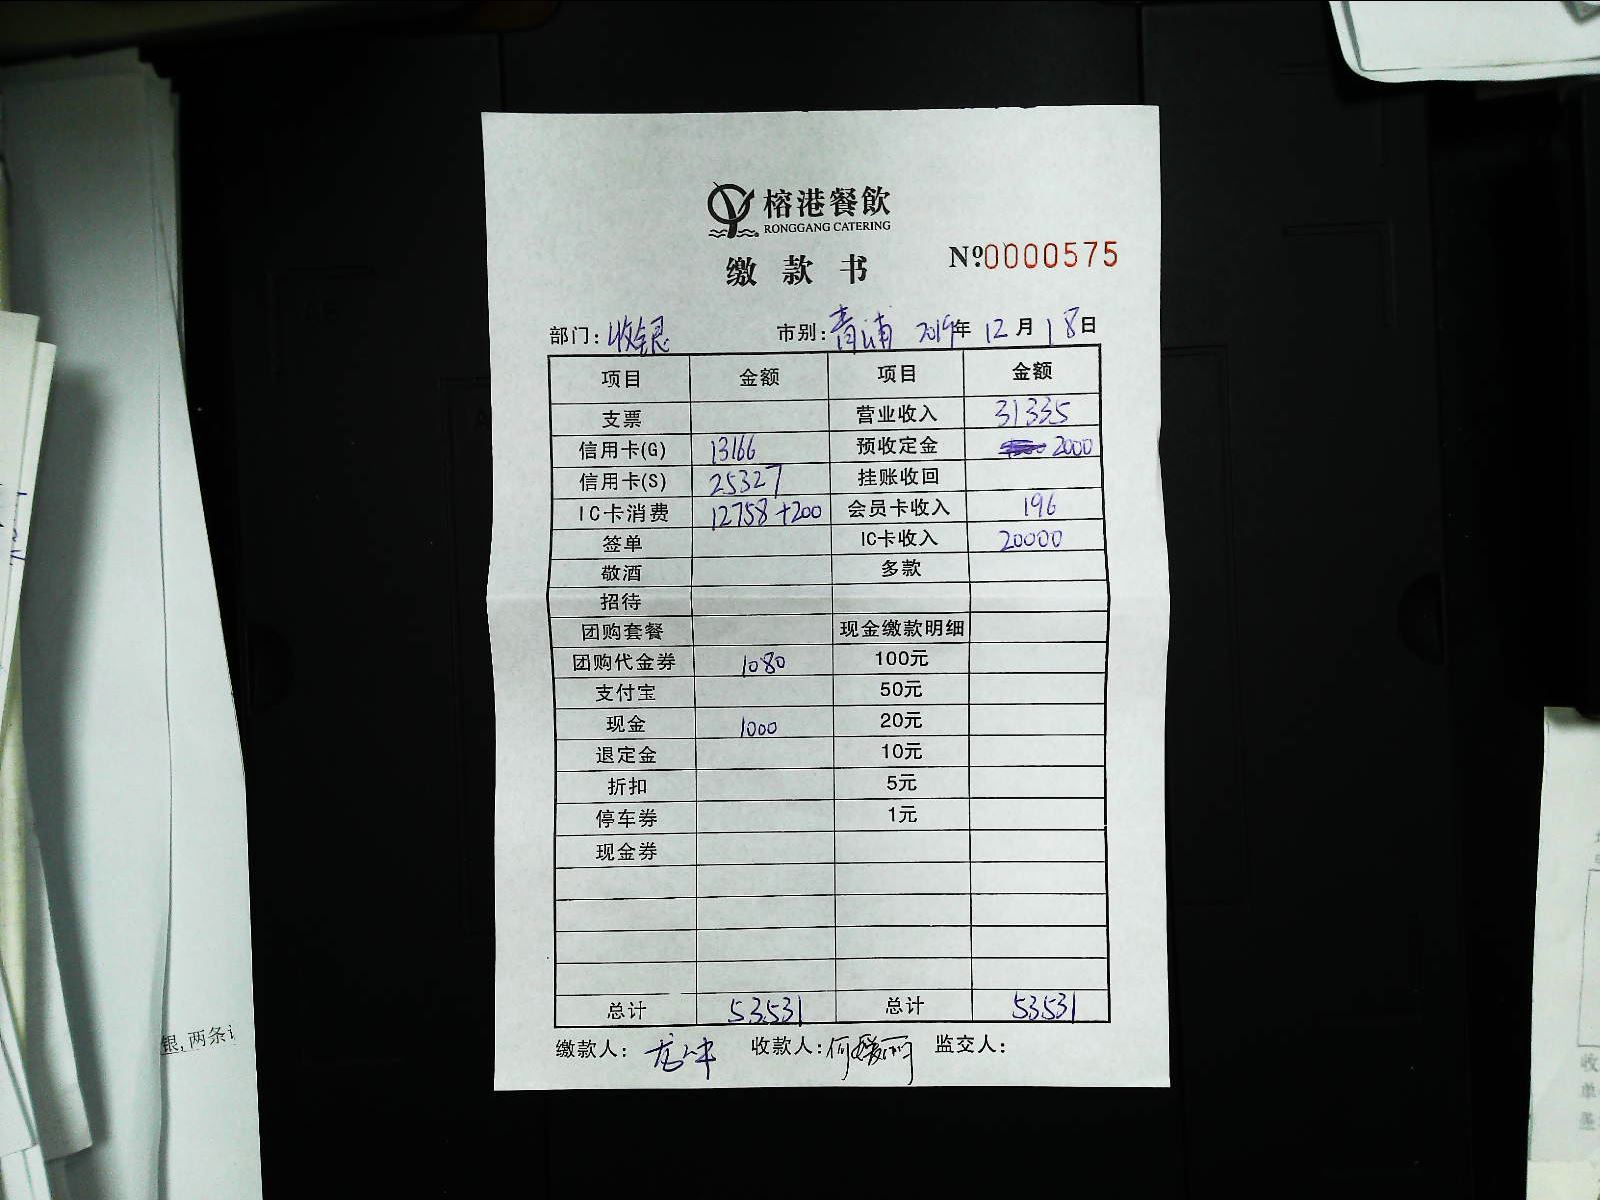 榕港餐飲
RONGGANG CATERING
缴款书
Nº0000575
部门：收银 市别：青浦 2019年12月18日
项目 金额 项目 金额
支票 营业收入 31335
信用卡(G) 13166 预收定金 2000
信用卡(S) 25327 挂账收回
IC卡消费 12758+200 会员卡收入 196
签单 IC卡收入 20000
敬酒 多款
招待
团购套餐 现金缴款明细
团购代金券 1080 100元
支付宝 50元
现金 1000 20元
退定金 10元
折扣 5元
停车券 1元
现金券
总计 53531 总计 53531
缴款人： 收款人：何媛丽 监交人：
银,两条
收
单